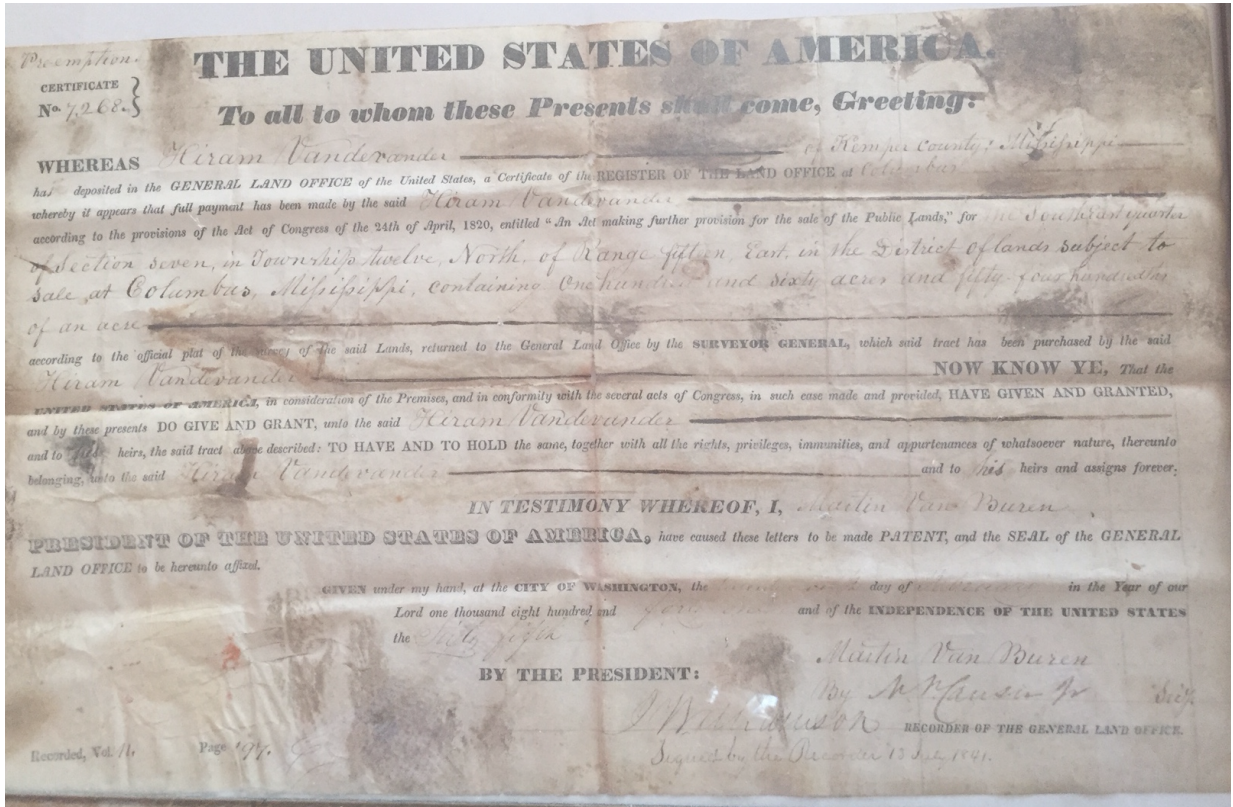 Preemption.
CERTIFICATE
No. 7,268.
THE UNITED STATES OF AMERICA.
To all to whom these Presents shall come, Greeting:
WHEREAS Hiram Vandevander of Kemper county, Mississippi
has deposited in the GENERAL LAND OFFICE of the United States, a Certificate of the REGISTER OF THE LAND OFFICE at Columbus
whereby it appears that full payment has been made by the said Hiram Vandevander
according to the provisions of the Act of Congress of the 24th of April, 1820, entitled "An Act making further provision for the sale of the Public Lands," for the South East quarter
of Section seven, in Township twelve, North, of Range fifteen, East, in the District of lands subject to
sale, at Columbus, Mississippi, containing One hundred and sixty acres and fifty-four hundredths
of an acre
according to the official plat of the survey of the said Lands, returned to the General Land Office by the SURVEYOR GENERAL, which said tract has been purchased by the said
Hiram Vandevander NOW KNOW YE, That the
UNITED STATES OF AMERICA, in consideration of the Premises, and in conformity with the several acts of Congress, in such case made and provided, HAVE GIVEN AND GRANTED,
and by these presents DO GIVE AND GRANT, unto the said Hiram Vandevander
and to his heirs, the said tract above described: TO HAVE AND TO HOLD the same, together with all the rights, privileges, immunities, and appurtenances of whatsoever nature, thereunto
belonging, unto the said Hiram Vandevander and to his heirs and assigns forever.
IN TESTIMONY WHEREOF, I, Martin Van Buren
PRESIDENT OF THE UNITED STATES OF AMERICA, have caused these letters to be made PATENT, and the SEAL of the GENERAL
LAND OFFICE to be hereunto affixed.
GIVEN under my hand, at the CITY OF WASHINGTON, the day of in the Year of our
Lord one thousand eight hundred and and of the INDEPENDENCE OF THE UNITED STATES
the Sixty fifth
BY THE PRESIDENT: Martin Van Buren
By Jr Secy.
J Williamson RECORDER OF THE GENERAL LAND OFFICE.
Signed by the Recorder 13 1841.
Recorded, Vol. Page 197.